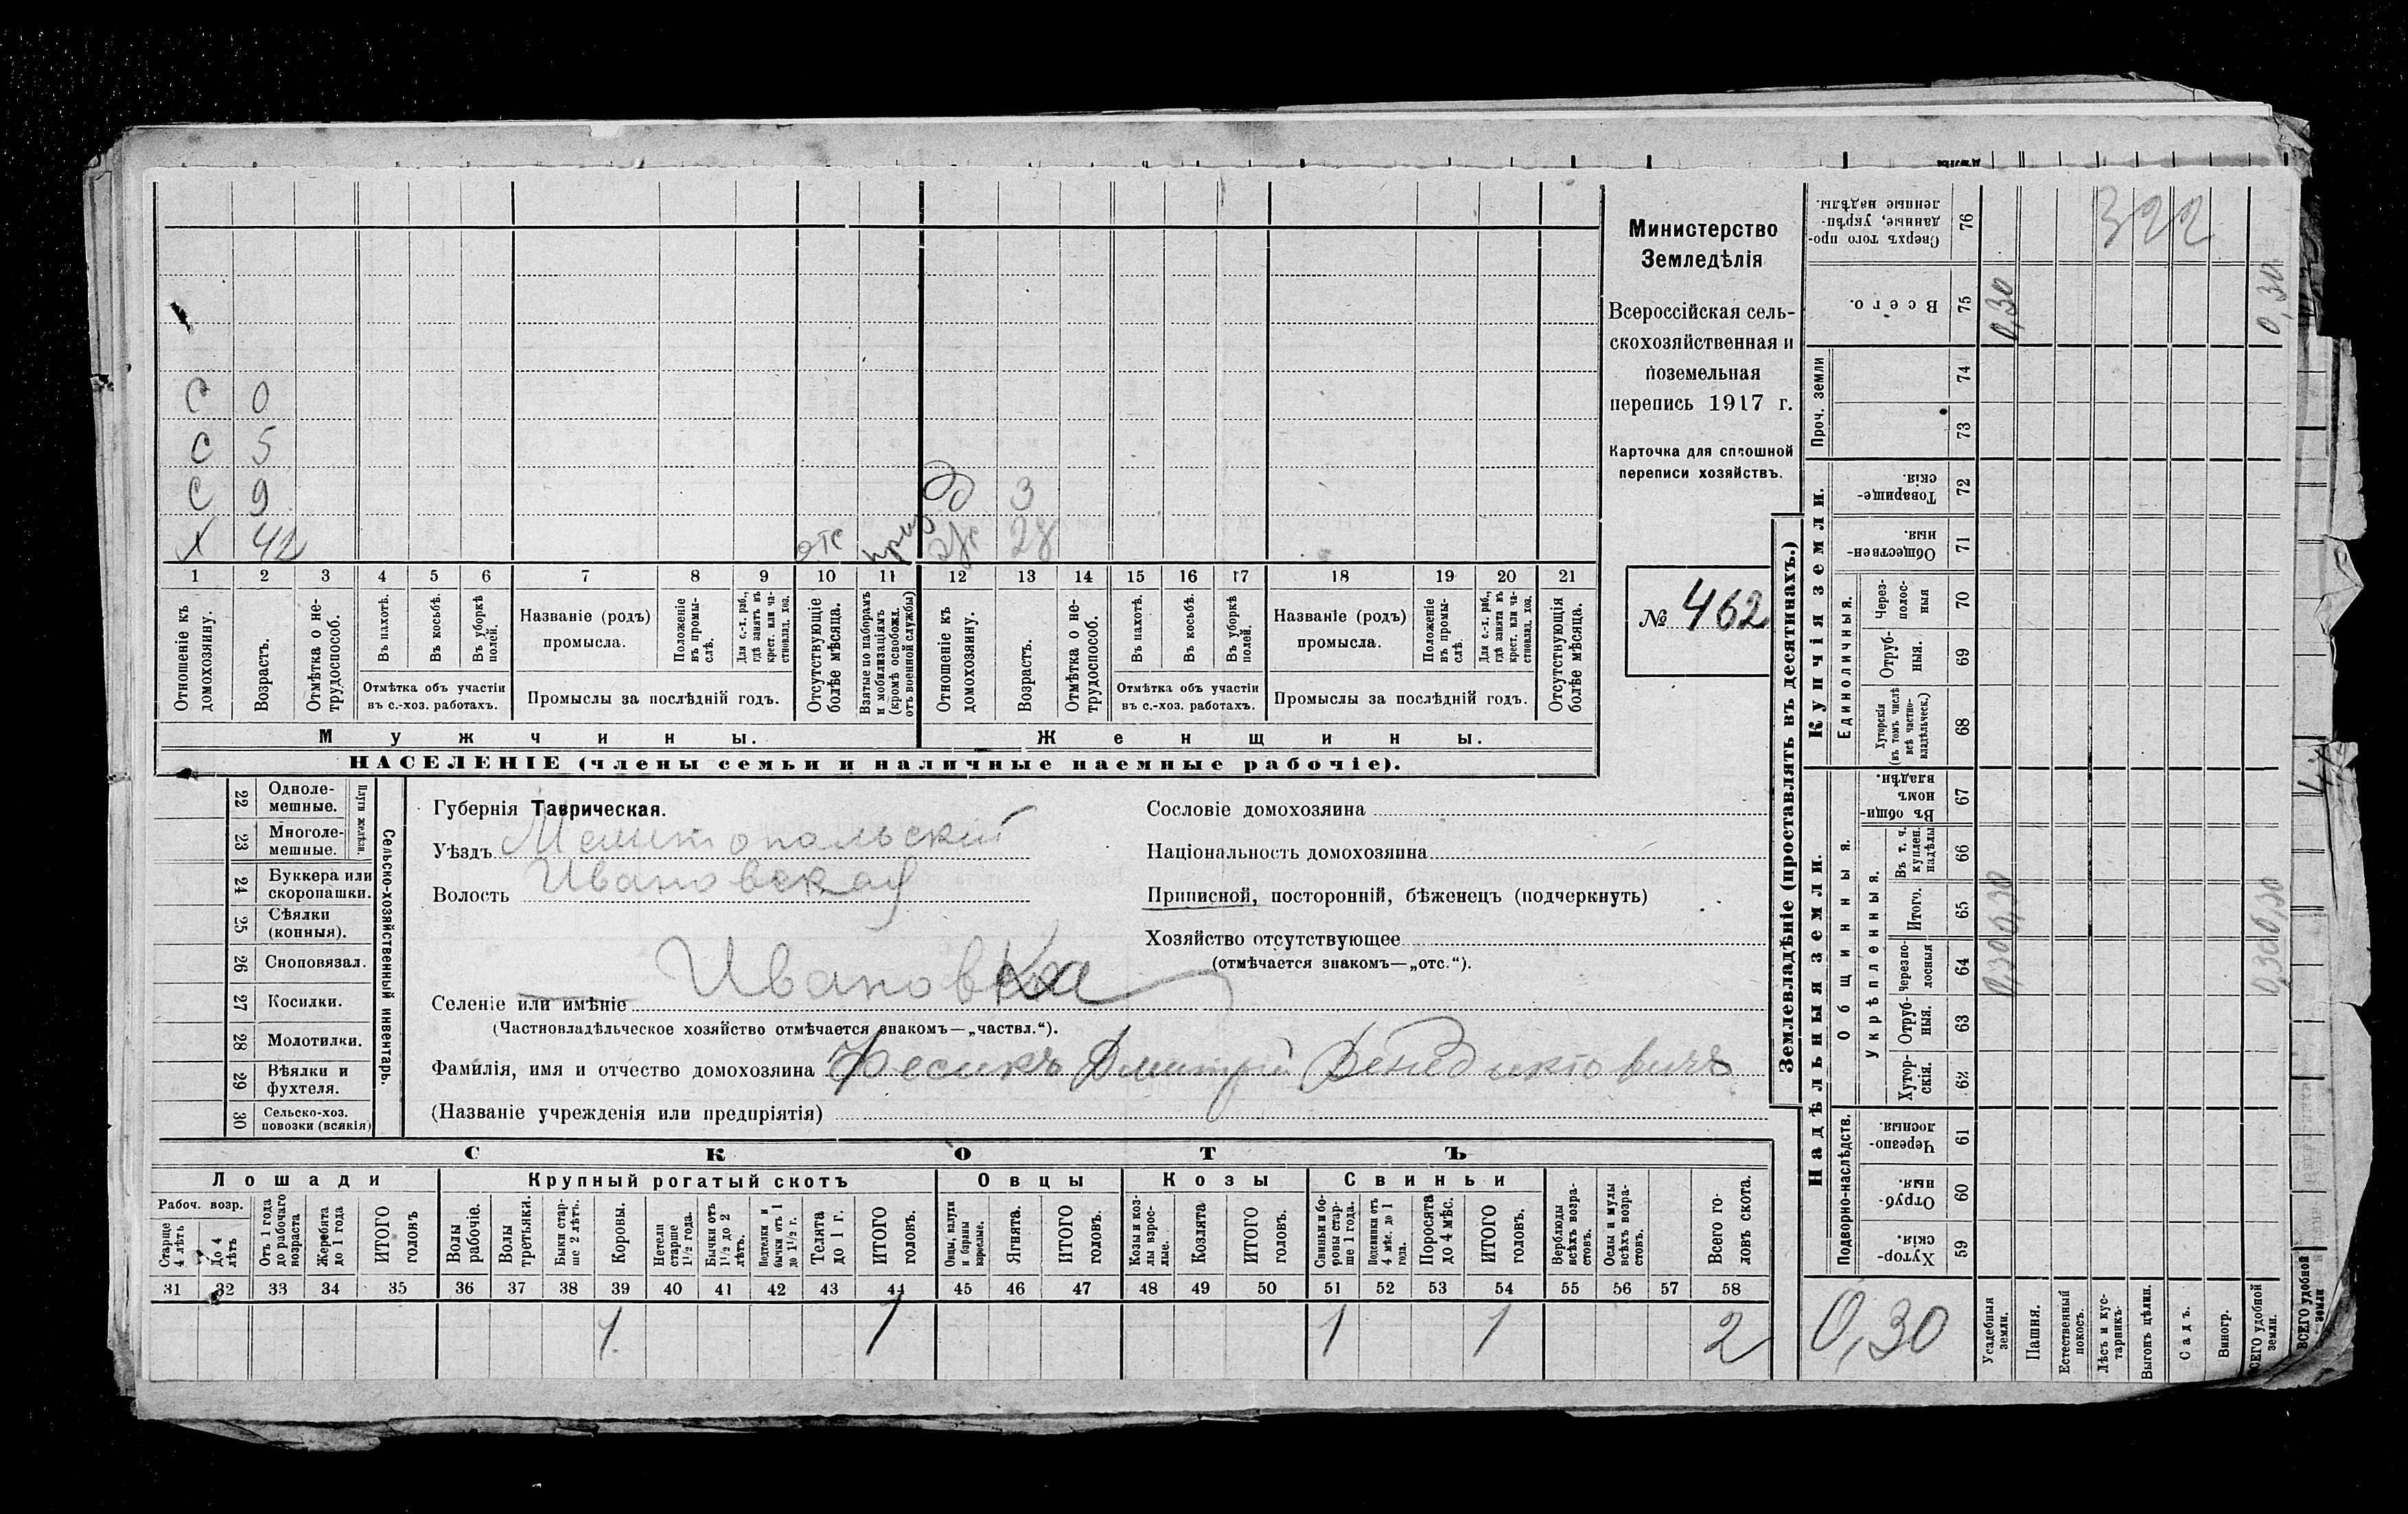 С 0
С 5
С 9 3
Х 42 отс приз ж 28
1 2 3 4 5 6 7 8 9 10 11 12 13 14 15 16 17 18 19 20 21
Отношеніе къ домохозяину.
Возрастъ.
Отмѣтка о не-
трудоспособ.
Въ пахотѣ.
Въ косьбѣ.
Въ уборкѣ
полей.
Отмѣтка объ участіи
въ с.-хоз. работахъ.
Названіе (родъ)
промысла.
Положеніе
въ промы-
слѣ.
Для с.-х. раб.,
гдѣ занятъ въ
крест. или ча-
стновлад. хоз.
Промыслы за послѣдній годъ.
Отсутствующіе
болѣе мѣсяца.
Взятые по наборамъ
и мобилизаціямъ
(кромѣ освобожд.
отъ военной службы)
Отношеніе къ
домохозяину.
Возрастъ.
Отмѣтка о не-
трудоспособ.
Въ пахотѣ.
Въ косьбѣ.
Въ уборкѣ
полей.
Отмѣтка объ участіи
въ с.-хоз. работахъ.
Названіе (родъ)
промысла.
Положеніе
въ промы-
слѣ
Для с.-х. раб.,
гдѣ занята въ
крест. или ча-
стновлад. хоз
Промыслы за послѣдній годъ.
Отсутствующія
болѣе мѣсяца.
Мужчины.
Женщины.
НАСЕЛЕНІЕ (члены семьи и наличные наемные рабочіе).
Министерство
Земледѣлія
Всероссійская сель-
скохозяйственная и
поземельная
перепись 1917 г.
Карточка для сплошной
переписи хозяйствъ.
№ 462
22 Одноле-
мешные.
23 Многоле-
мешные.
Плуги желѣзн.
24 Буккера или
скоропашки.
25 Сѣялки
(конныя).
26 Сноповязал.
27 Косилки.
28 Молотилки.
29 Вѣялки и
фухтеля.
30 Сельско-хоз.
повозки (всякія)
Сельско-хозяйственный инвентарь.
Губернія Таврическая.
Уѣздъ Мелитопольскій
Волость Ивановская
Селеніе или имѣніе Ивановка
(Частновладѣльческое хозяйство отмѣчается знакомъ—„частвл.“).
Фамилія, имя и отчество домохозяина Фесикъ Дмитрій Венедиктовичъ
(Названіе учрежденія или предпріятія)
Сословіе домохозяина
Національность домохозяина
Приписной, посторонній, бѣженец (подчеркнуть)
Хозяйство отсутствующее
(отмѣчается знакомъ—„отс.“).
СКОТЪ
Лошади
Крупный рогатый скотъ
Овцы
Козы
Свиньи
Рабоч. возр.
Старше
4 лѣтъ
До 4
лѣтъ
Отъ 1 года
до рабочаго
возраста
Жеребята
до 1 года
ИТОГО
головъ
Волы
рабочіе.
Волы
третьяки.
Быки стар-
ше 2 лѣтъ.
Коровы.
Нетели
старше
1½ года.
Бычки отъ
1½ до 2
лѣтъ.
Подтелки и
бычки отъ 1
до 1½ г.
Телята
до 1 г.
ИТОГО
головъ.
Овцы, валухи
и бараны
взрослые.
Ягнята.
ИТОГО
головъ.
Козы и коз-
лы взрос-
лые.
Козлята
ИТОГО
головъ.
Свиньи и бо-
ровы стар-
ше 1 года.
Подсвинки отъ
4 мѣс. до 1
года.
Поросята
до 4 мѣс.
ИТОГО
головъ.
Верблюды
всѣхъ возра-
стовъ.
Ослы и мулы
всѣхъ возра-
стовъ.
Всего го-
ловъ скота.
31 32 33 34 35 36 37 38 39 40 41 42 43 44 45 46 47 48 49 50 51 52 53 54 55 56 57 58
1 1 1 1 2
Землевладѣніе (проставлять въ десятинахъ.)
Надѣльныя земли.
Купчія земли.
Проч. земли
Подворно-наслѣдств.
Общинныя.
Укрѣпленныя.
Единоличныя.
Сверхъ того про-
данные, укрѣп-
ленные надѣлы.
76
322
Всего.
75
0,30
0,30
74
73
Товарище-
скія.
72
Обществен-
ныя.
71
Через-
полос-
ныя
70
Отруб-
ныя.
69
Хуторскія
(въ томъ числѣ
всѣ частно-
владѣльческ.)
68
Въ общи-
номъ
владѣн.
67
Въ т. ч.
куплен.
надѣлы
66
Итого.
65
0,30
0,30
Черезпо-
лосныя
64
0,30
0,30
Отруб-
ныя.
63
Хутор-
скія.
62
Черезпо-
лосныя
61
Отруб-
ныя.
60
Хутор-
скія.
59
0,30
Усадебныя
земли.
Пашня.
Естественный
покосъ.
Лѣсъ и кус-
тарникъ.
Выгонъ цѣлин.
Садъ.
Виногр.
СЕГО удобной
земли.
ВСЕГО удобной
земли